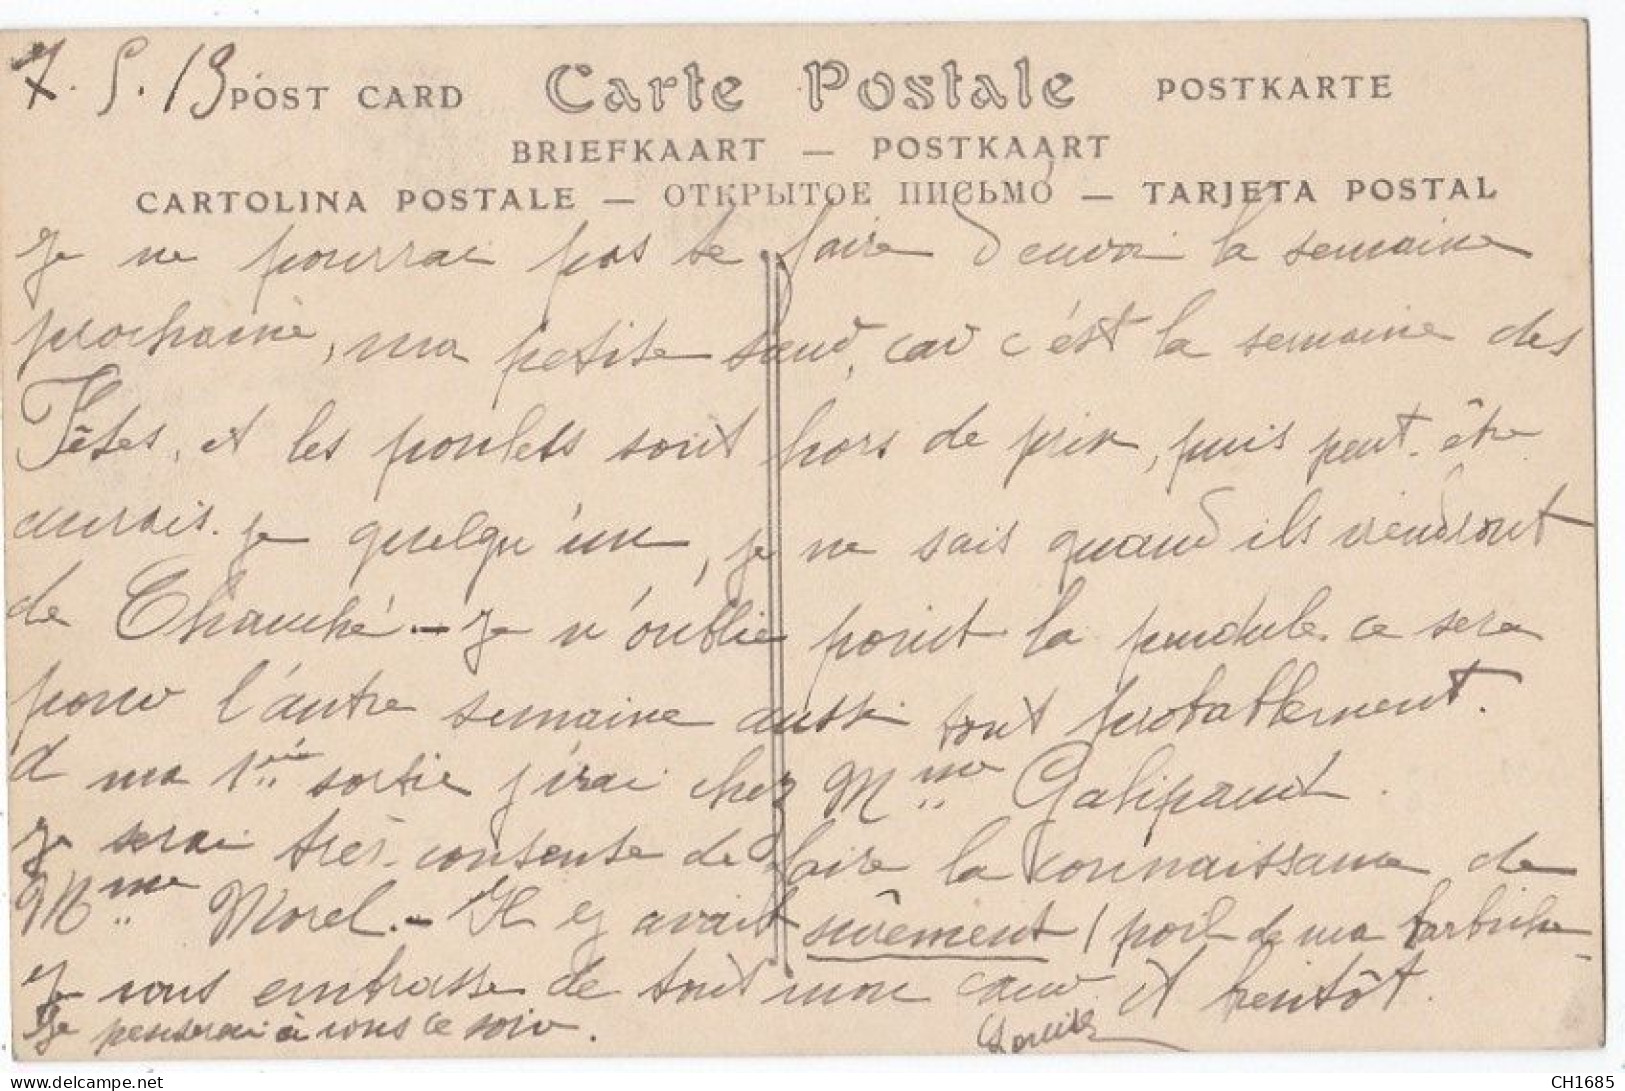 7. 5. 13
POST CARD Carte Postale POSTKARTE
BRIEFKAART — POSTKAART
CARTOLINA POSTALE — ОТКРЫТОЕ ПИСЬМО — TARJETA POSTAL
Je ne pourrai pas te faire d'envoi la semaine
prochaine, ma petite sœur, car c'est la semaine des
Fêtes, et les poulets sont hors de prix, puis peut-être
aurais-je quelqu'un, je ne sais quand ils viendront
de Chauché. — Je n'oublie point la pendule. ce sera
pour l'autre semaine aussi tout probablement.
à ma 1ère sortie j'irai chez Mme Galipaud.
Je serai très contente de faire la connaissance de
Mme Morel. — Il y avait sûrement 1 poil de ma
Je vous embrasse de tout mon cœur et bientôt.
Je penserai à vous ce soir.
Louise
CH1685